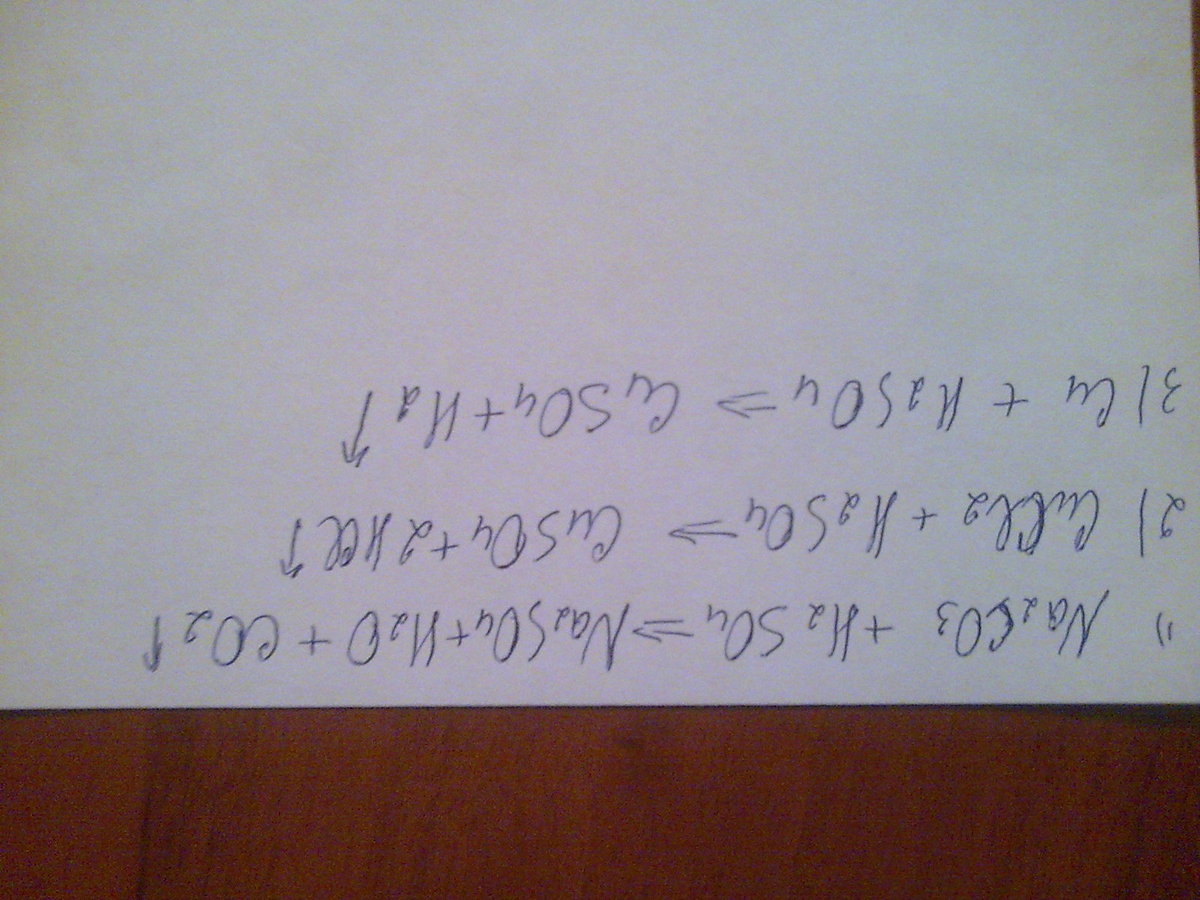 1) Na2CO3 + H2SO4 ⇒ Na2SO4 + H2O + CO2↑
2) CuCl2 + H2SO4 ⇒ CuSO4 + 2HCl↑
3) Cu + H2SO4 ⇒ CuSO4 + H2↑